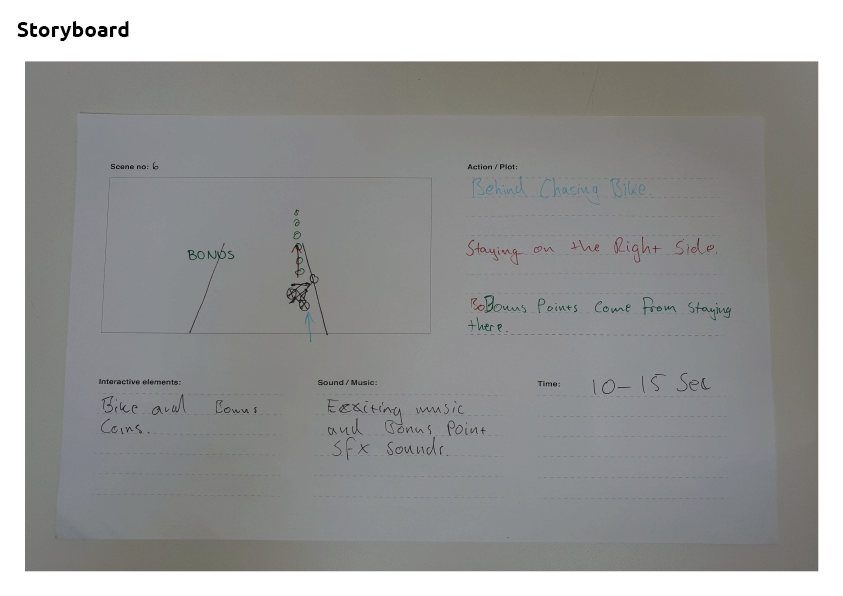 Storyboard
Scene no: 6
BONUS
Action / Plot:
Behind Chasing Bike.
Staying on the Right Side.
BoBonus Points Come from Staying
there.
Interactive elements:
Bike and Bonus
Coins.
Sound / Music:
Exxiting music
and Bonus Point
Sfx Sounds.
Time: 10-15 Sec